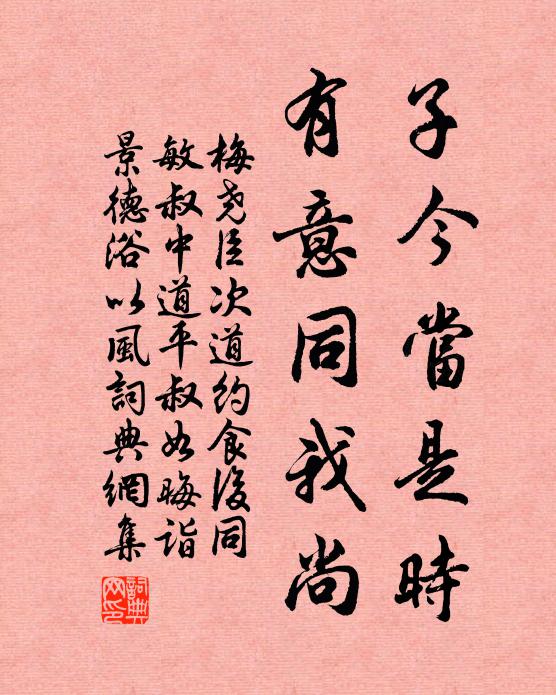 子今當是時
有意同我尚
梅堯臣次道約食後同
敏叔中道平叔如晦詣
景德浴以風詞典網集
詞典網印